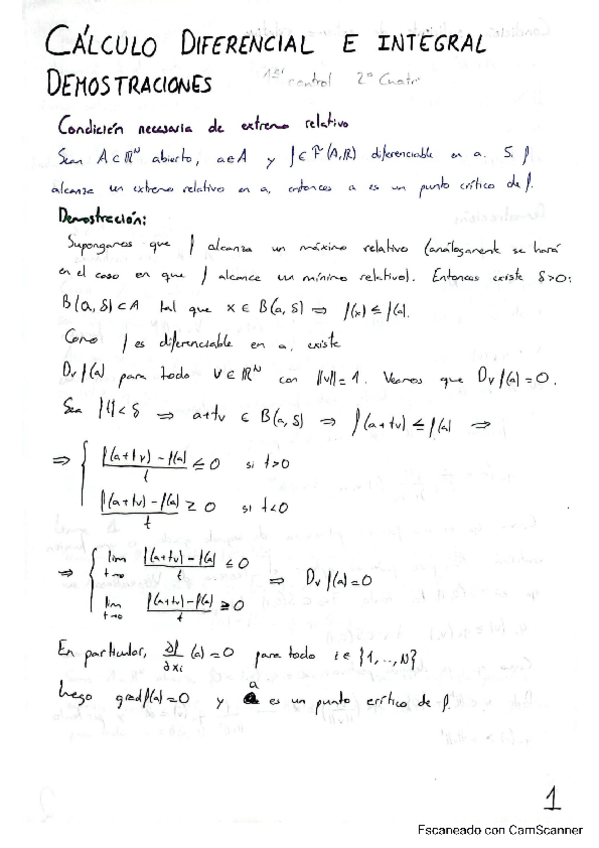 CÁLCULO DIFERENCIAL E INTEGRAL
DEMOSTRACIONES 1er control 2º Cuatri
Condición necesaria de extremo relativo
Sean A⊂ℝᴺ abierto, a∈A y f∈F(A,ℝ) diferenciable en a. Si f
alcanza un extremo relativo en a, entonces a es un punto crítico de f.
Demostración:
Supongamos que f alcanza un máximo relativo (análogamente se hará
en el caso en que f alcance un mínimo relativo). Entonces existe δ>0:
B(a,δ)⊂A tal que x∈B(a,δ) ⇒ f(x)≤f(a).
Como f es diferenciable en a, existe
Dvf(a) para todo v∈ℝᴺ con ||v||=1. Veamos que Dvf(a)=0.
Sea |t|<δ ⇒ a+tv ∈ B(a,δ) ⇒ f(a+tv)≤f(a) ⇒
⇒ { (f(a+tv)-f(a))/t ≤ 0 si t>0
(f(a+tv)-f(a))/t ≥ 0 si t<0
⇒ { lim t→0 (f(a+tv)-f(a))/t ≤ 0 ⇒ Dvf(a)=0
lim t→0 (f(a+tv)-f(a))/t ≥ 0
En particular, ∂f/∂xi (a)=0 para todo i∈{1,..,N}
Luego gradf(a)=0 y a es un punto crítico de f.
1
Escaneado con CamScanner